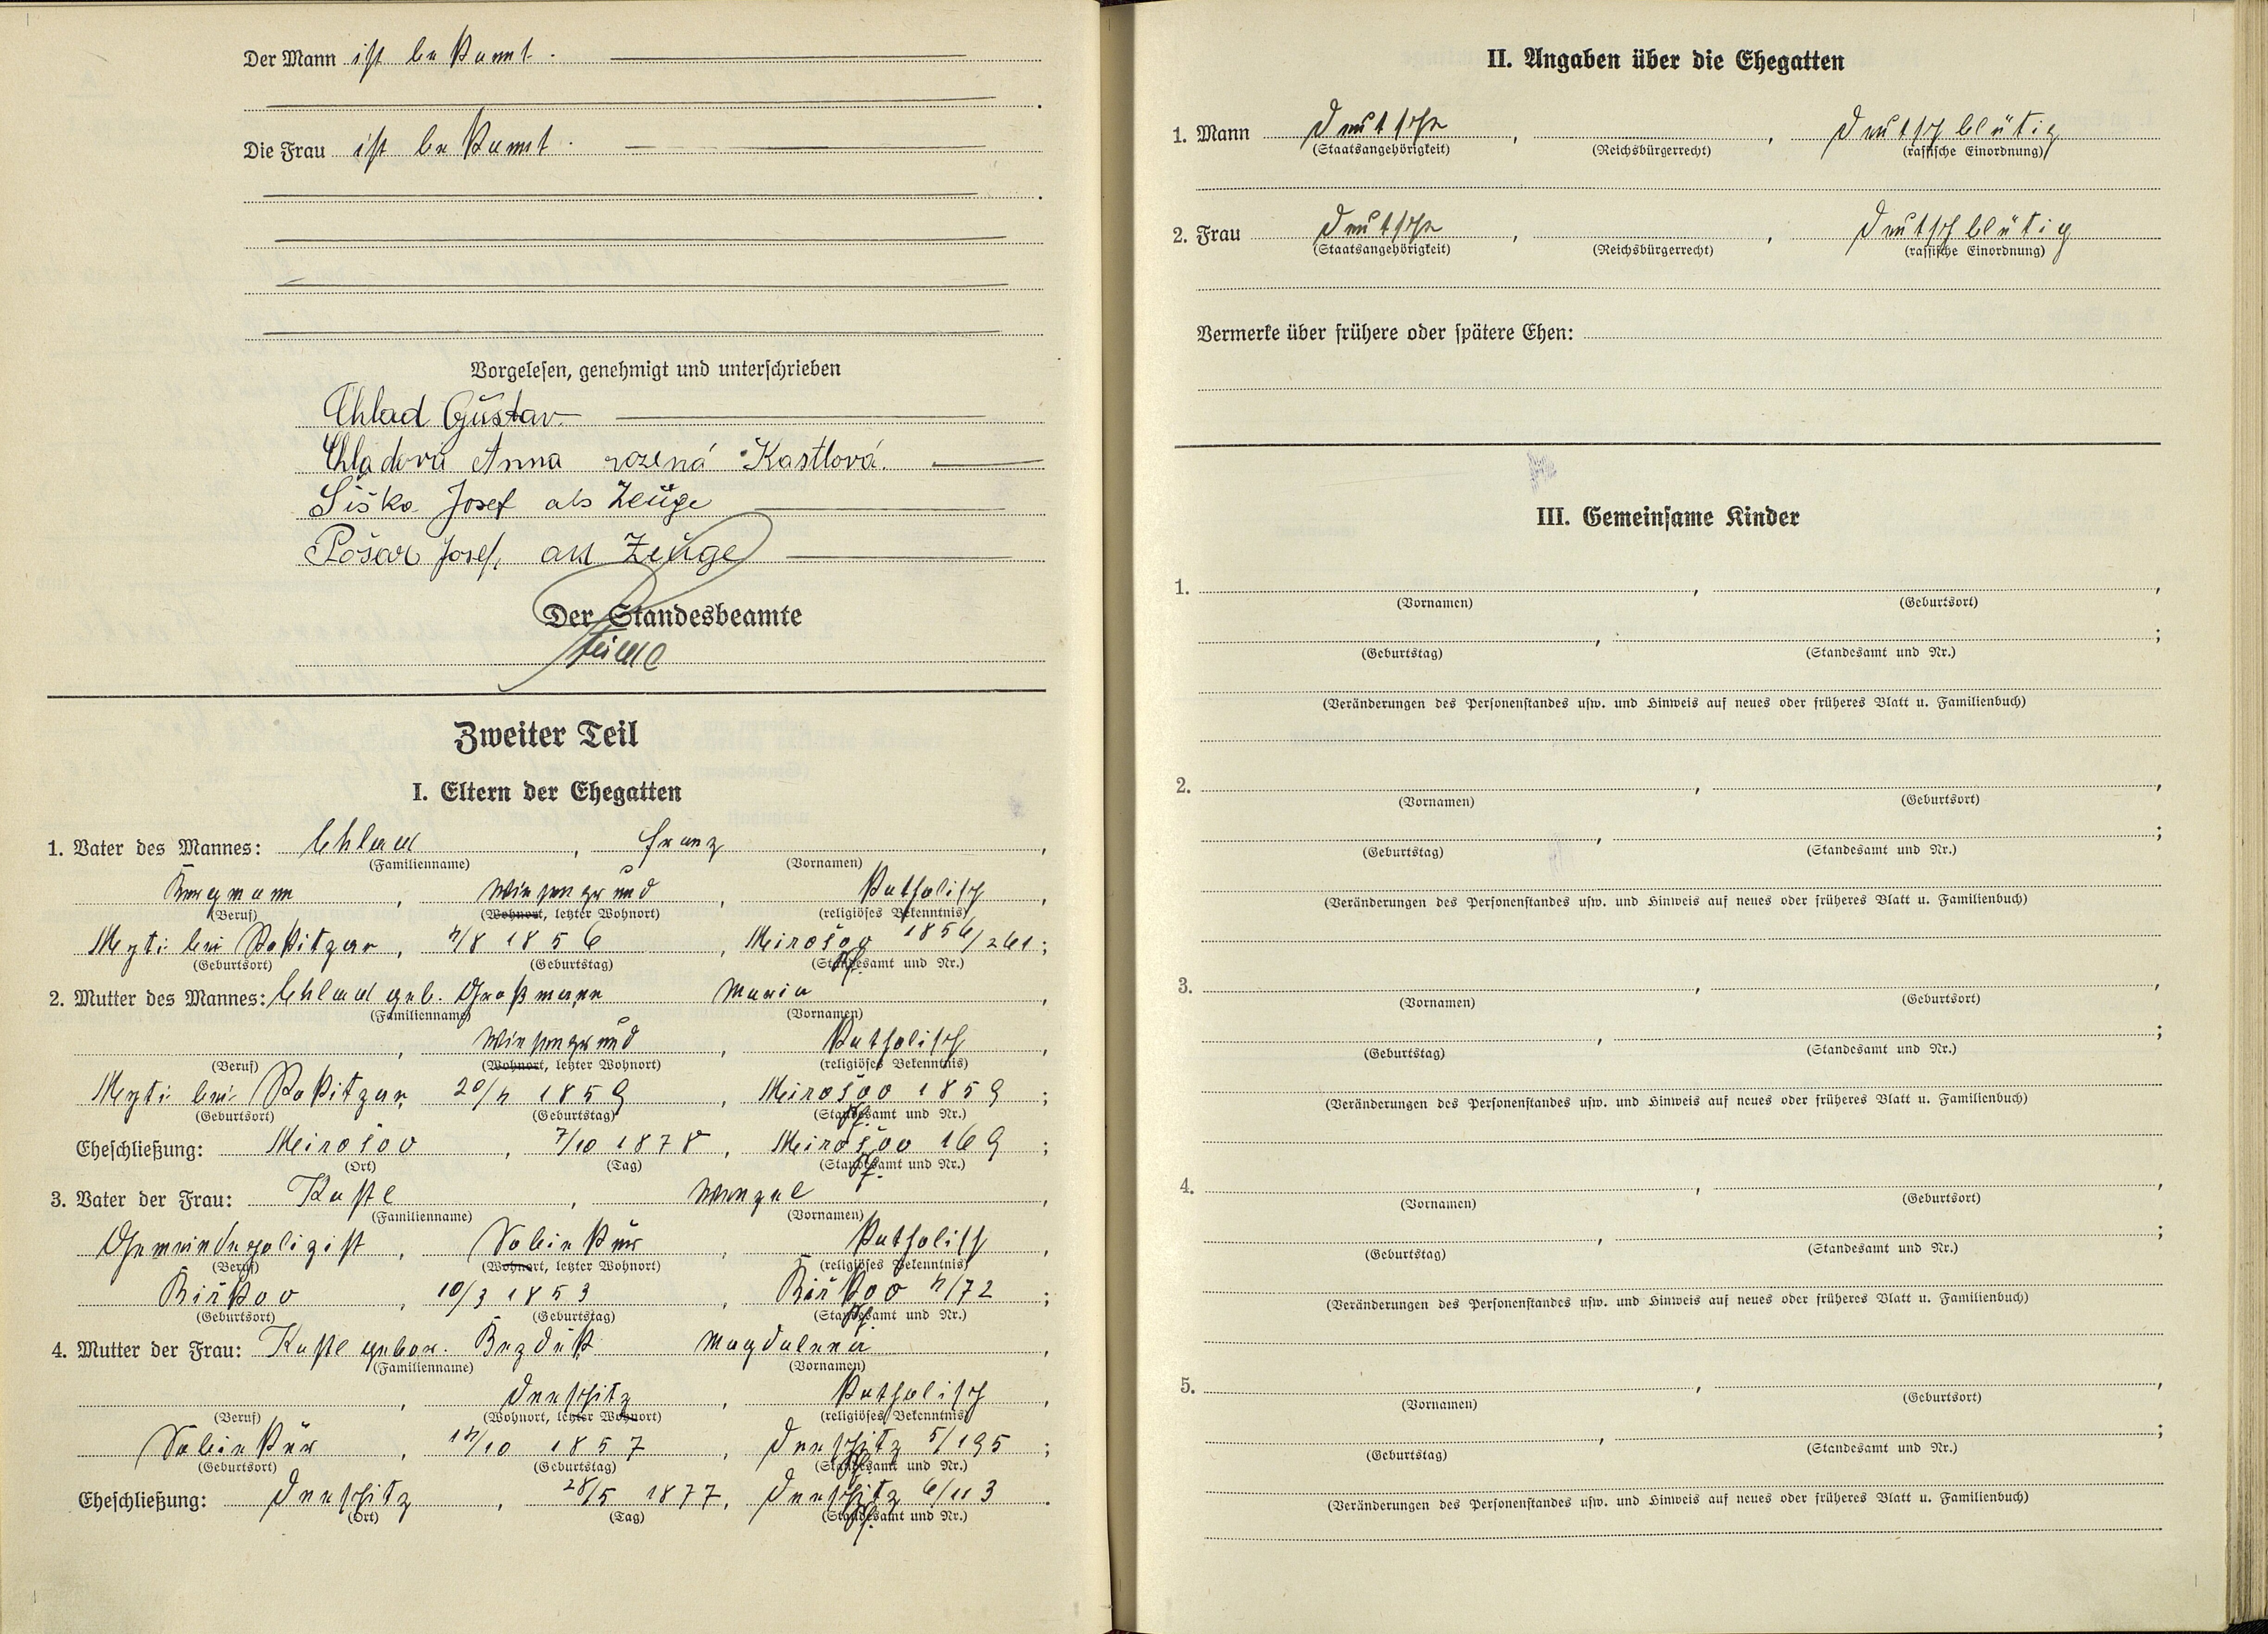 Der Mann ist bekannt.
Die Frau ist bekannt.
Vorgelesen, genehmigt und unterschrieben
Chlad Gustav
Chladová Anna rozená Kastlová.
Šiška Josef als Zeuge
Josef, als Zeuge
Der Standesbeamte
Zweiter Teil
I. Eltern der Ehegatten
1. Vater des Mannes: Chlad, Franz,
(Familienname) (Vornamen)
Bergmann, Wiesengrund, Katholisch,
(Beruf) (Wohnort, letzter Wohnort) (religiöses Bekenntnis)
Meyti bei Rokitzan, 4/8 1856, Mirošov 1856/261;
(Geburtsort) (Geburtstag) (Standesamt und Nr.)
2. Mutter des Mannes: Chlad geb. Großmann Maria,
(Familienname) (Vornamen)
, Wiesengrund, Katholisch,
(Beruf) (Wohnort, letzter Wohnort) (religiöses Bekenntnis)
Meyti bei Rokitzan, 20/4 1859, Mirošov 1859;
(Geburtsort) (Geburtstag) (Standesamt und Nr.)
Eheschließung: Mirošov, 7/10 1878, Mirošov 169;
(Ort) (Tag) (Standesamt und Nr.)
3. Vater der Frau: Kastl, Wenzel,
(Familienname) (Vornamen)
Gemeindepolizist, Sobiekur, Katholisch,
(Beruf) (Wohnort, letzter Wohnort) (religiöses Bekenntnis)
Biřkov, 10/3 1853, Biřkov 4/72;
(Geburtsort) (Geburtstag) (Standesamt und Nr.)
4. Mutter der Frau: Kastl gebor. Bezděk Magdalena,
(Familienname) (Vornamen)
, Dneschitz, Katholisch,
(Beruf) (Wohnort, letzter Wohnort) (religiöses Bekenntnis)
Sobiekur, 14/10 1857, Dneschitz 5/195;
(Geburtsort) (Geburtstag) (Standesamt und Nr.)
Eheschließung: Dneschitz, 28/5 1877, Dneschitz 6/113.
(Ort) (Tag) (Standesamt und Nr.)
II. Angaben über die Ehegatten
1. Mann Deutsche, , Deutschblütig
(Staatsangehörigkeit) (Reichsbürgerrecht) (rassische Einordnung)
2. Frau Deutsche, , Deutschblütig
(Staatsangehörigkeit) (Reichsbürgerrecht) (rassische Einordnung)
Vermerke über frühere oder spätere Ehen:
III. Gemeinsame Kinder
1. , ,
(Vornamen) (Geburtsort)
, ;
(Geburtstag) (Standesamt und Nr.)
(Veränderungen des Personenstandes usw. und Hinweis auf neues oder früheres Blatt u. Familienbuch)
2. , ,
(Vornamen) (Geburtsort)
, ;
(Geburtstag) (Standesamt und Nr.)
(Veränderungen des Personenstandes usw. und Hinweis auf neues oder früheres Blatt u. Familienbuch)
3. , ,
(Vornamen) (Geburtsort)
, ;
(Geburtstag) (Standesamt und Nr.)
(Veränderungen des Personenstandes usw. und Hinweis auf neues oder früheres Blatt u. Familienbuch)
4. , ,
(Vornamen) (Geburtsort)
, ;
(Geburtstag) (Standesamt und Nr.)
(Veränderungen des Personenstandes usw. und Hinweis auf neues oder früheres Blatt u. Familienbuch)
5. , ,
(Vornamen) (Geburtsort)
, ;
(Geburtstag) (Standesamt und Nr.)
(Veränderungen des Personenstandes usw. und Hinweis auf neues oder früheres Blatt u. Familienbuch)